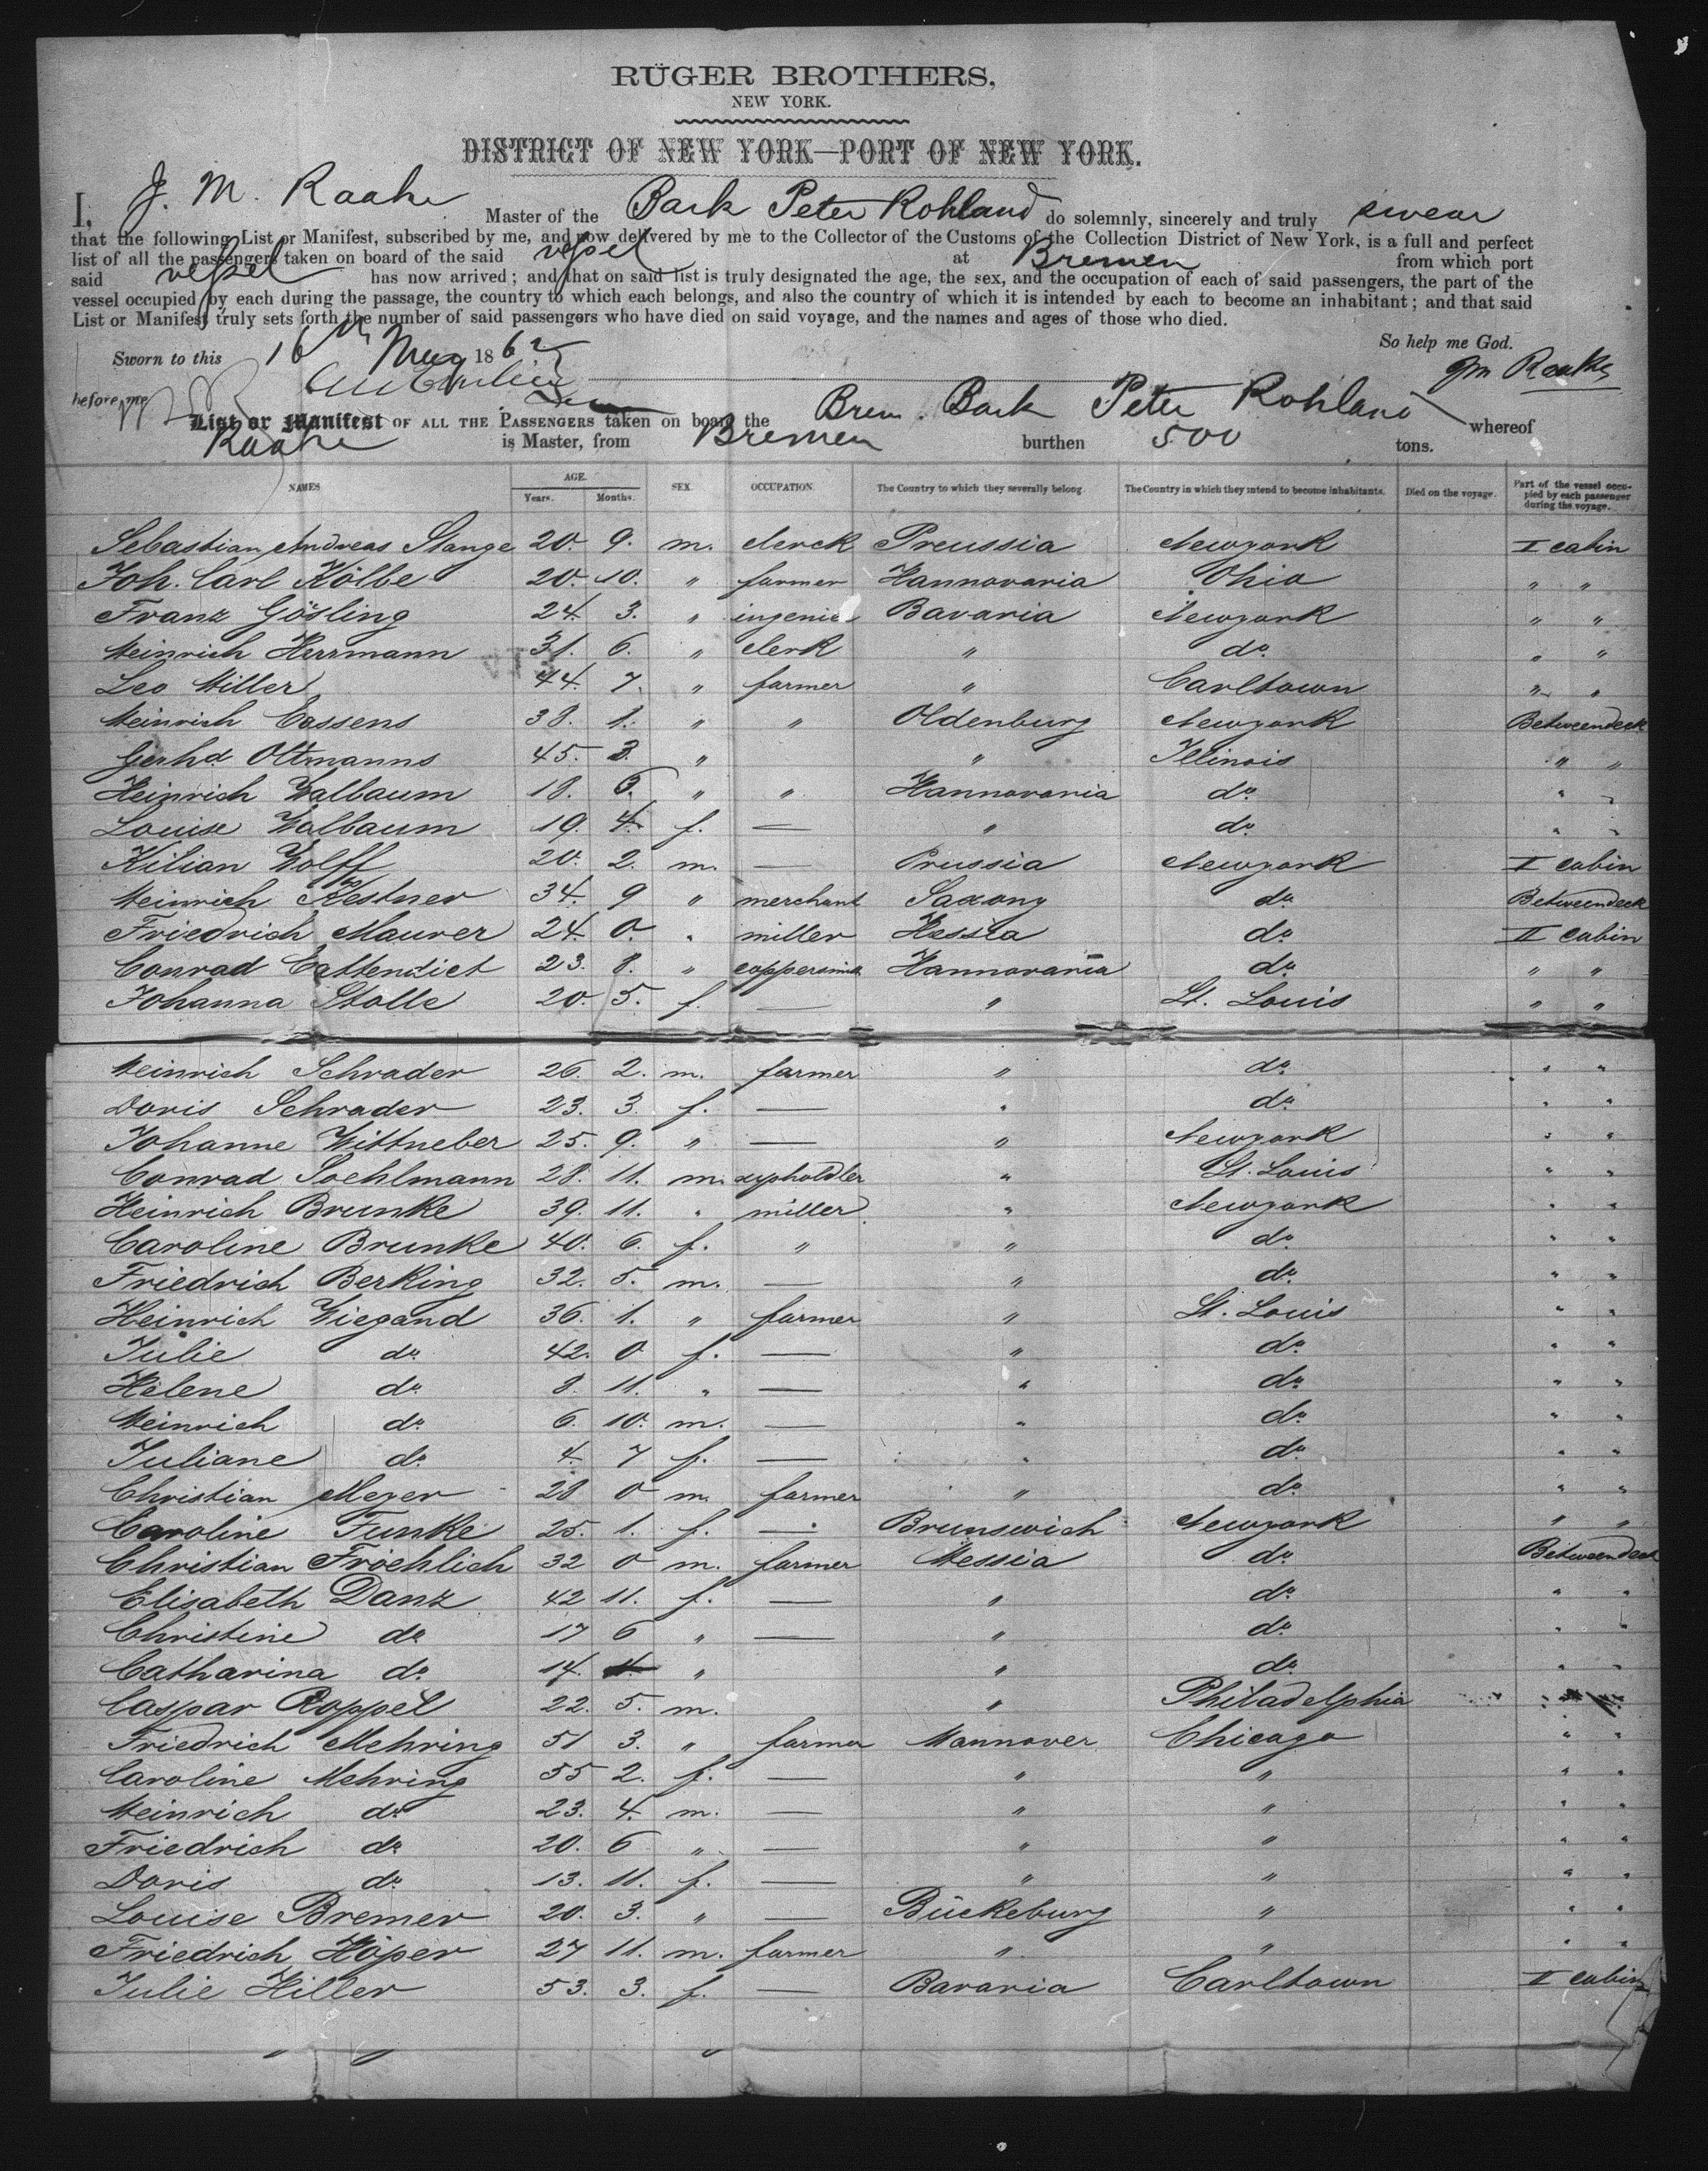 RÜGER BROTHERS,
NEW YORK.
DISTRICT OF NEW YORK—PORT OF NEW YORK.
I, J. M. Raake Master of the Bark Peter Rohland do solemnly, sincerely and truly swear
that the following List or Manifest, subscribed by me, and now delivered by me to the Collector of the Customs of the Collection District of New York, is a full and perfect
list of all the passengers taken on board of the said vessel at Bremen from which port
said vessel has now arrived; and that on said list is truly designated the age, the sex, and the occupation of each of said passengers, the part of the
vessel occupied by each during the passage, the country to which each belongs, and also the country of which it is intended by each to become an inhabitant; and that said
List or Manifest truly sets forth the number of said passengers who have died on said voyage, and the names and ages of those who died.
So help me God.
Sworn to this 16th May 186
before me
JM Raake
List or Manifest OF ALL THE PASSENGERS taken on board the Brem. Bark Peter Rohland whereof
Raake is Master, from Bremen burthen 500 tons.
NAMES AGE. Years. Months. SEX. OCCUPATION. The Country to which they severally belong. The Country in which they intend to become inhabitants. Died on the voyage. Part of the vessel occupied by each passenger during the voyage.
Sebastian Andreas Stange 20. 9. m. clerck Preussia Newyork II cabin
Joh. Carl Kölbe 20. 10. " farmer Hannovaria Ohio " "
Franz Gösling 24. 3. " ingenie Bavaria Newyork " "
Heinrich Herrmann 31. 6. " clerk " do " "
Leo Hiller 44. 7. " farmer " Carltown " "
Heinrich Cassens 38. 1. " " Oldenburg Newyork Betweendeck
Gerhd Oltmanns 45. 3. " " Illinois " "
Heinrich Walbaum 18. 6. " " Hannovaria do " "
Louise Walbaum 19. 4. f. — " do " "
Kilian Wolff 20. 2. m. — Prussia Newyork II cabin
Heinrich Kestner 34. 9 " merchant Saxony do Betweendeck
Friedrich Maurer 24. 0. " miller Hessia do II cabin
Conrad Cattendict 23. 8. " coppersmit Hannovaria do " "
Johanna Stolle 20. 5. f. — " St. Louis " "
Heinrich Schrader 26. 2. m. farmer " do " "
Doris Schrader 23. 3. f. — " do " "
Johanne Wittneber 25. 9. " — " Newyork " "
Conrad Soehlmann 28. 11. m. " St. Louis " "
Heinrich Brunke 39. 11. " miller " Newyork " "
Caroline Brunke 40. 6. f. " " do " "
Friedrich Berking 32. 5. m. — " do " "
Heinrich Wiegand 36. 1. " farmer " St. Louis " "
Julie do 42. 0 f. — " do " "
Helene do 8. 11. " — " do " "
Heinrich do 6. 10. m. — " do " "
Juliane do 4. 7 f. — " do " "
Christian Meyer 28 0 m. farmer " do " "
Caroline Funke 25. 1. f. — Brunswich Newyork " "
Christian Froehlich 32 0 m. farmer Hessia do Betweendeck
Elisabeth Danz 42 11. f. — " do " "
Christine do 17 6 " — " do " "
Catharina do 14. " " do " "
Caspar Roppel 22. 5. m. " Philadelphia
Friedrich Mehring 51 3. " farmer Hannover Chicago " "
Caroline Mehring 55 2. f. — " " " "
Heinrich do 23. 4. m. — " " " "
Friedrich do 20. 6 " — " " " "
Doris do 13. 11. f. — " " " "
Louise Bremer 20. 3. " — Bückeburg " " "
Friedrich Höper 27 11. m. farmer " " " "
Julie Hiller 53. 3. f. — Bavaria Carltown II cabin